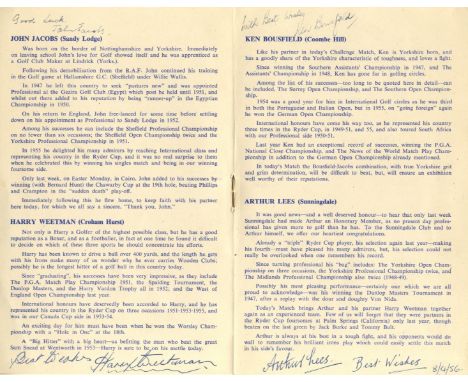 Good Luck
John Jacobs.
JOHN JACOBS (Sandy Lodge)
Was born on the border of Nottinghamshire and Yorkshire. Immediately
on leaving school John's love for Golf showed itself and he was apprenticed as
a Golf Club Maker at Lindrick (Yorks.).
Following his demobilisation from the R.A.F. John continued his training
in the Golf game at Hallamshire G.C. (Sheffield) under Willie Wallis.
In 1947 he felt this country to seek "pastures new" and was appointed
Professional at the Gezira Golf Club (Egypt) which post he held until 1951, and
whilst out there added to his reputation by being "runner-up" in the Egyptian
Championship in 1951.
On his return to England, John free-lanced for some time before settling
down on his appointment as Professional to Sandy Lodge in 1952.
Among his successes he can include the Sheffield Professional Championship
on no fewer than six occasions; the Sheffield Open Championship twice and the
Yorkshire Professional Championship in 1951.
In 1955 he delighted his many admirers by reaching International class and
representing his country in the Ryder Cup, and it was no real surprise to them
when he celebrated this by winning his singles match and being in our winning
foursome side.
Only last week, on Easter Monday, in Cairo, John added to his successes by
winning (with Bernard Hunt) the Chawarby Cup at the 19th hole, beating Phillips
and Crampton in the "sudden death" play-off.
Immediately following this he flew home to keep faith with his partner
here today, for which we all say a sincere, "Thank you, John."
HARRY WEETMAN (Croham Hurst)
Not only is Harry a Golfer of the highest possible class, but he has a good
reputation as a Boxer, and as a footballer, in fact at one time he found it difficult
to decide on which of these three sports he should concentrate his efforts.
Harry has been known to drive a ball over 400 yards, and the length he gets
with his Irons make many of us wonder why he ever carries Wooden Clubs;
possibly he is the longest hitter of a golf ball in this country today.
Since "graduating," his successes have been very impressive, as they include
the P.G.A. Match Play Championship 1951, the Spalding Tournament, the
Dunlop Masters, and the Harry Vardon Trophy all in 1952; and the West of
England Open Championship last year.
International honours have deservedly been accorded to Harry, and he has
represented his country in the Ryder Cup on three occasions 1951-1953-1955, and
was in our Canada Cup side in 1953-54.
An exciting day for him must have been when he won the Worsley Cham-
pionship with a "Hole in One" at the 18th.
A "Big Hitter" with a big heart—as befitting the man who beat the great
Sam Snead at Wentworth in 1953—Harry is sure to be on his mettle today.
Best Wishes Harry Weetman
With Best Wishes
Ken Bousfield
KEN BOUSFIELD (Coombe Hill)
Like his partner in today's Challenge Match, Ken is Yorkshire born, and
has a goodly share of the Yorkshire characteristic of toughness, and loves a fight.
Since winning the Southern Assistants' Championship in 1947, and The
Assistants' Championship in 1948, Ken has gone far in golfing circles.
Among the list of his successes—too long to be quoted here in detail—can
be included, The Surrey Open Championship, and The Southern Open Champion-
ship.
1954 was a good year for him in International Golf circles as he was third
in both the Portuguese and Italian Open, but in 1955, on "going foreign" again
he won the German Open Championship.
International honours have come his way too, as he represented his country
three times in the Ryder Cup, in 1949-51, and 55, and also toured South Africa
with our Professional side 1950-51.
Last year Ken had an exceptional record of successes, winning the P.G.A.
National Close Championship, and The News of the World Match Play Cham-
pionship in addition to the German Open Championship already mentioned.
In today's Match the Bousfield-Jacobs combination, with true Yorkshire grit
and grim determination, will be difficult to beat, but, will ensure an exhibition
well worthy of their reputations.
ARTHUR LEES (Sunningdale)
It was good news—and a well deserved honour—to hear that only last week
Sunningdale had made Arthur an Honorary Member, as no present day profes-
sional has given more to golf than he has. To the Sunningdale Club and to
Arthur himself, we offer our heartiest congratulations.
Already a 'triple' Ryder Cup player, his selection again last year—making
his fourth—must have pleased his many admirers, but, his selection could not
really be overlooked when one remembers his record.
Since turning professional his 'bag' includes: The Yorkshire Open Champion-
ship on three occasions, the Yorkshire Professional Championship twice, and
The Midlands Professional Championship also twice (1948-49).
Possibly his most pleasing performance—certainly one which we are all
proud to acknowledge—was his winning the Dunlop Masters Tournament in
1947, after a replay with the dour and doughty Von Nida.
Today's Match brings Arthur and his partner Harry Weetman together
again as an experienced team. Few of us will forget that they were partners in
the Ryder Cup foursomes at Palm Springs (California) only last year, though
beaten on the last green by Jack Burke and Tommy Bolt.
Arthur is always at his best in a tough fight, and his opponents would do
well to remember his brilliant irons play which could easily settle this match
in his side's favour.
Arthur Lees. Best Wishes 8/4/56.